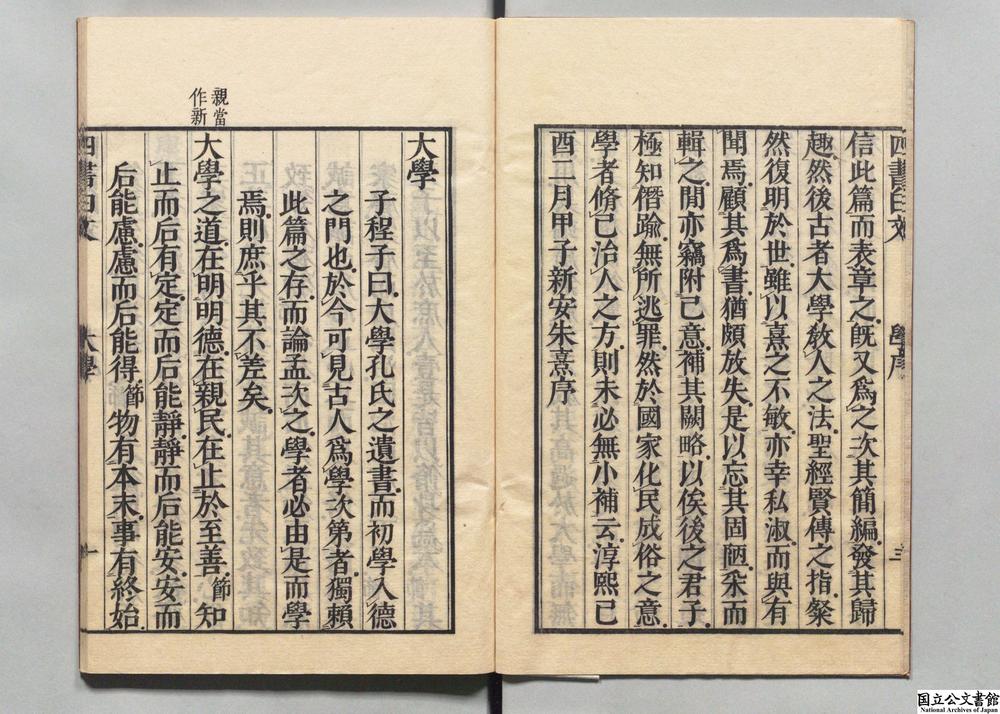 四書白文 學序 三
信此篇而表章之既又爲之次其簡編發其歸
趣然後古者大學教人之法聖經賢傳之指粲
然復明於世雖以熹之不敏亦幸私淑而與有
聞焉顧其爲書猶頗放失是以忘其固陋采而
輯之閒亦竊附己意補其闕略以俟後之君子
極知僭踰無所逃罪然於國家化民成俗之意
學者脩己治人之方則未必無小補云淳熙己
酉二月甲子新安朱熹序
大學
子程子曰大學孔氏之遺書而初學入德
之門也於今可見古人爲學次第者獨賴
此篇之存而論孟次之學者必由是而學
焉則庶乎其不差矣
親當
作新
大學之道在明明德在親民在止於至善節知
止而后有定定而后能靜靜而后能安安而
后能慮慮而后能得節物有本末事有終始
四書白文 大學 一
国立公文書館
National Archives of Japan